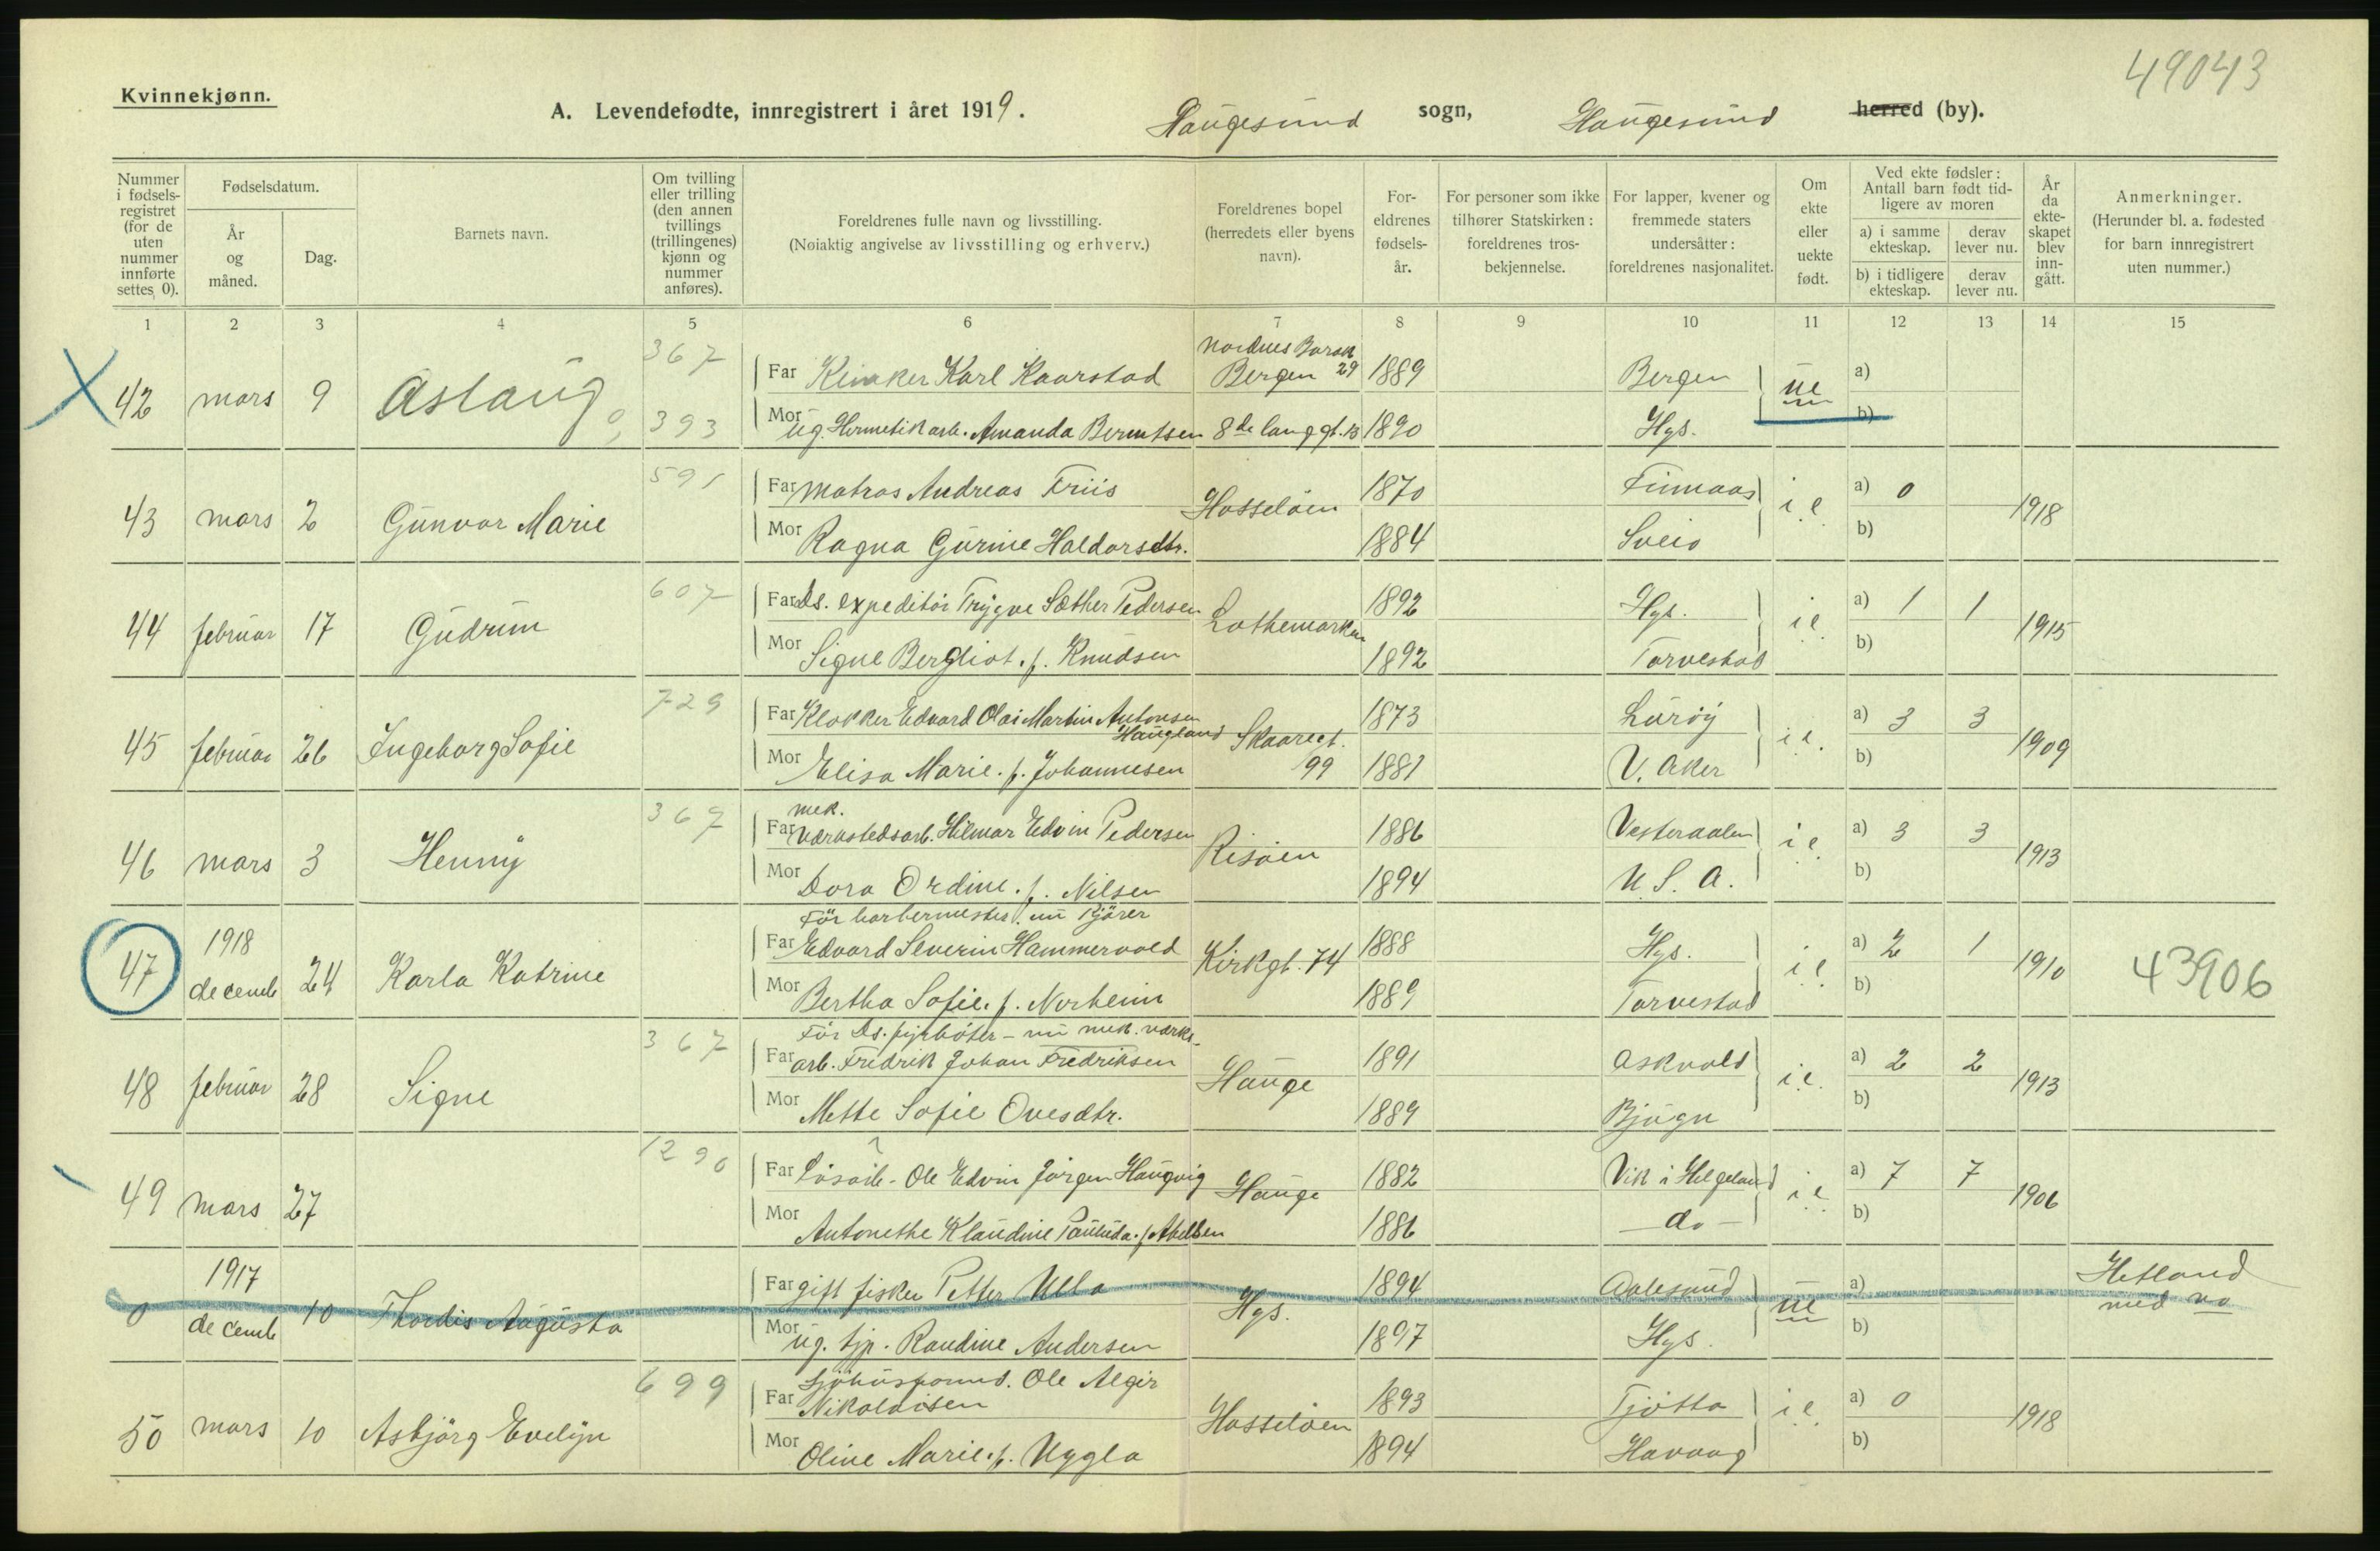 49043
Kvinnekjønn.
A. Levendefødte, innregistrert i året 1919. Haugesund sogn, Haugesund herred (by).
Nummer i fødsels-registret (for de uten nummer innførte settes 0).
Fødselsdatum.
År og måned.
Dag.
Barnets navn.
Om tvilling eller trilling (den annen tvillings (trillingenes) kjønn og nummer anføres).
Foreldrenes fulle navn og livsstilling.
(Nøiaktig angivelse av livsstilling og erhverv.)
Foreldrenes bopel (herredets eller byens navn).
For-eldrenes fødsels-år.
For personer som ikke tilhører Statskirken: foreldrenes tros-bekjennelse.
For lapper, kvener og fremmede staters undersåtter: foreldrenes nasjonalitet.
Om ekte eller uekte født.
Ved ekte fødsler: Antall barn født tid-ligere av moren
a) i samme ekteskap.
derav lever nu.
b) i tidligere ekteskap.
derav lever nu.
År da ekte-skapet blev inn-gått.
Anmerkninger.
(Herunder bl. a. fødested for barn innregistrert uten nummer.)
1 2 3 4 5 6 7 8 9 10 11 12 13 14 15
367 Nordnes Barak
42 mars 9 Aslaug Far Karl Kaarstad Bergen 29 1889 Bergen ue a)
393 Mor ug. Hermetikarb. Amanda Berentsen 8de langgt. 1890 Hgs. b)
591
43 mars 2 Gunvor Marie Far Matros Andreas Friis Hasseløen 1870 Finnaas i.e. a) 0 1918
Mor Ragna Gurine Haldorsdtr. 1884 Sveio b)
607
44 februar 17 Gudrun Far Ds. expeditør Trygve Sæther Pedersen Lothemarken 1892 Hgs. i.e. a) 1 1 1915
Mor Signe Bergliot. f. Knudsen 1892 Torvestad b)
729
45 februar 26 Ingeborg Sofie Far Klokker Edvard Olai Martin Antonsen Haugland Skaaregt. 99 1873 Lurøy i.e. a) 3 3 1909
Mor Elisa Marie. f. Johannesen 1881 V. Aker b)
367 mek.
46 mars 3 Henny Far Værkstedsarb. Hilmar Edvin Pedersen Risøen 1886 Vesteraalen i.e. a) 3 3 1913
Mor Dora Ordine. f. Nilsen 1894 U.S.A. b)
Før barbermester. nu kjører
47 1918 decemb 24 Karla Katrine Far Edvard Severin Hammervold Kirkgt. 74 1888 Hgs. i.e. a) 2 1 1910 43906
Mor Bertha Sofie. f. Norheim 1889 Torvestad b)
367 Før Ds. fyrbøter - nu mek. værks-
48 februar 28 Signe Far arb. Fredrik Johan Fredriksen Hauge 1891 Askvold i.e. a) 2 2 1913
Mor Mette Sofie Ovesdtr. 1889 Bjugn b)
1290 ?
49 mars 27 Far Løsarb. - Ole Edvin Jørgen Haugvig Hauge 1882 Vik i Helgeland i.e. a) 7 7 1906
Mor Antonethe Klaudine Paulida. f. Abelsen 1886 - do - b)
0 1917 decemb 10 Thordis Augusta Far gift fisker Petter Ulla Hgs. 1894 Aalesund ue a) Hetland med no
Mor ug. tjp. Randine Andersen 1897 Hgs. b)
699 Sjøhusformd. Ole Algir
50 mars 10 Asbjørg Evelyn Far Nikolaisen Hasseløen 1893 Tjøtta i.e. a) 0 1918
Mor Oline Marie. f. Uggla 1894 Havaag b)